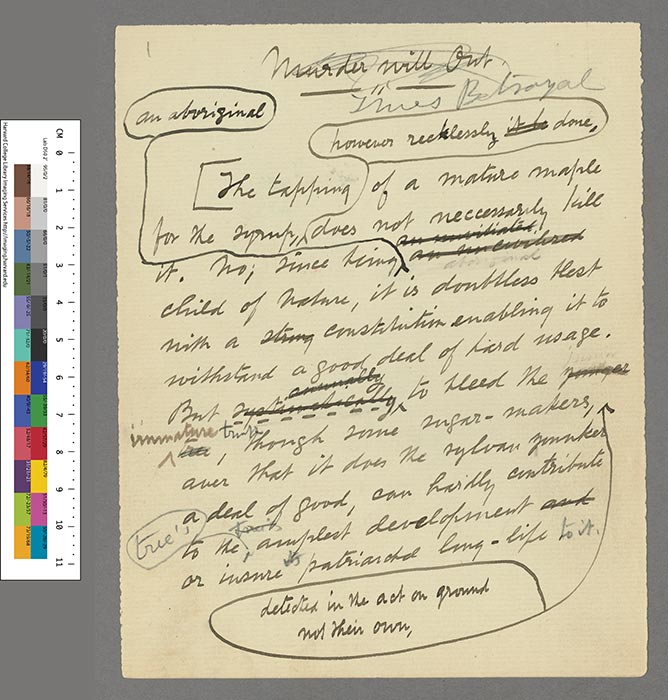 1
Murder will Out
Times Betrayal
an aboriginal
however recklessly it be done,
The tapping of a mature maple
for the syrup, does not neccessarily kill
an uncivilized
it. No; since being an uncivilized
aboriginal
child of Nature, it is doubtless blest
with a strong constitution enabling it to
withstand a good deal of hard usage.
annually
But systematically to bleed the younger
immature trunk
tree, though some sugar-makers,
aver that it does the sylvan younker
a deal of good, can hardly contribute
tree's
to the amplest development and
or insure patriarchal long-life to it.
detected in the act on ground
not their own,
CM 0 1 2 3 4 5 6 7 8 9 10 11
Harvard College Library Imaging Services